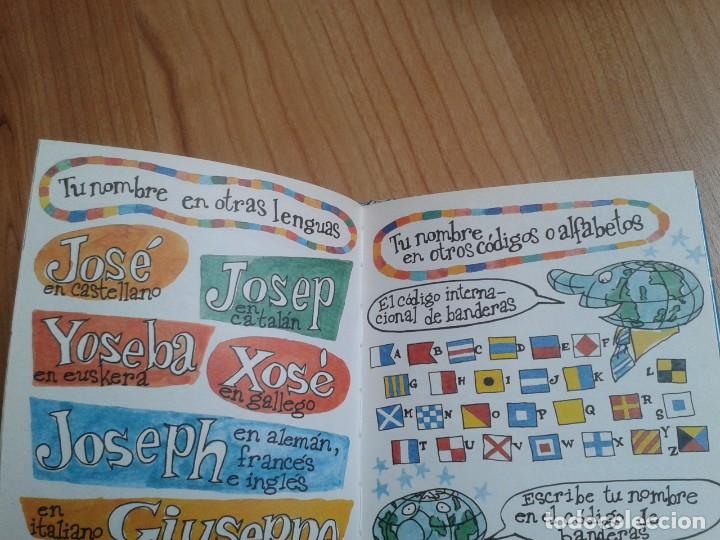 Tu nombre en otras lenguas
José
en castellano
Josep
en
catalán
Yoseba
en euskera
Xosé
en gallego
Joseph
en alemán,
francés
e inglés
en
italiano
Giuseppe
Tu nombre
en otros códigos o alfabetos
El código interna-
cional de banderas
A B C D E F
G H I J K L
M N O P Q R S
T U V W X Y Z
Escribe tu nombre
en el código de
banderas
todocoleccion